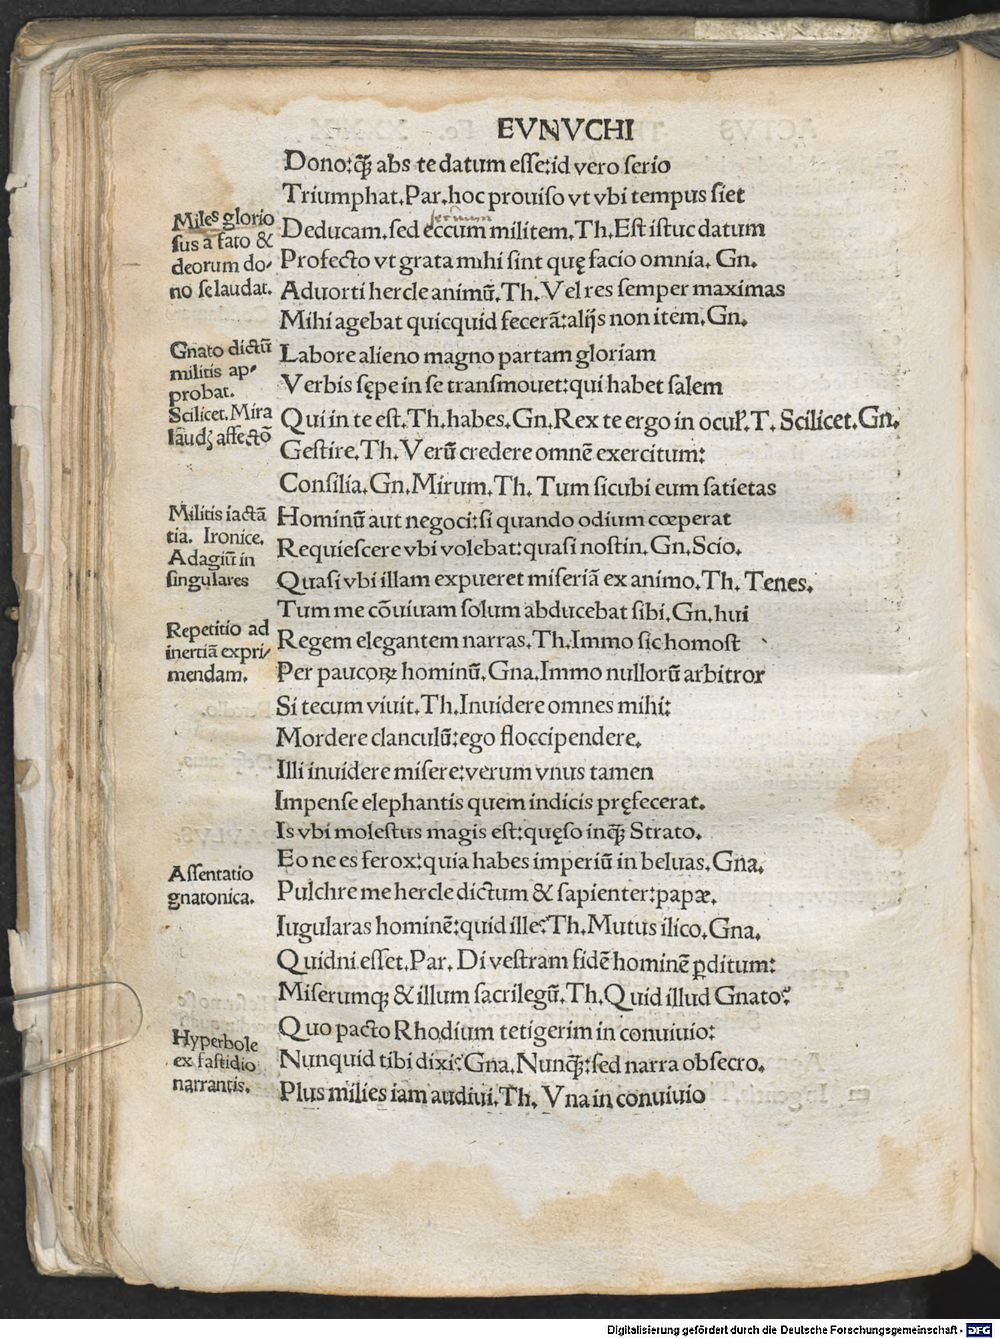 EVNVCHI
Dono:qꝫ abs te datum esse:id vero serio
Triumphat.Par.hoc prouiso vt vbi tempus siet
Deducam.sed eccum militem.Th.Est istuc datum
Profecto vt grata mihi sint quę facio omnia. Gn.
Aduorti hercle animũ.Th.Vel res semper maximas
Mihi agebat quicquid fecerã:alijs non item.Gn.
Labore alieno magno partam gloriam
Verbis sępe in se transmouet:qui habet salem
Qui in te est.Th.habes.Gn.Rex te ergo in ocul'.T. Scilicet.Gn.
Gestire.Th.Verũ credere omnẽ exercitum:
Consilia.Gn.Mirum.Th. Tum sicubi eum satietas
Hominũ aut negoci:si quando odium cœperat
Requiescere vbi volebat:quasi nostin.Gn.Scio.
Quasi vbi illam expueret miseriã ex animo.Th. Tenes.
Tum me cõuiuam solum abducebat sibi.Gn.hui
Regem elegantem narras.Th.Immo sic homost
Per paucoꝝ hominũ.Gna.Immo nullorũ arbitror
Si tecum viuit.Th.Inuidere omnes mihi:
Mordere clanculũ:ego floccipendere.
Illi inuidere misere:verum vnus tamen
Impense elephantis quem indicis pręfecerat.
Is vbi molestus magis est:quęso inqꝫ Strato.
Eo ne es ferox:quia habes imperiũ in beluas.Gna.
Pulchre me hercle dictum & sapienter:papæ.
Iugularas hominẽ:quid ille?Th.Mutus ilico.Gna.
Quidni esset.Par. Di vestram fidẽ hominẽ ꝑditum:
Miserumqꝫ & illum sacrilegũ.Th.Quid illud Gnato?
Quo pacto Rhodium tetigerim in conuiuio:
Nunquid tibi dixi?Gna.Nunqꝫ:sed narra obsecro.
Plus milies iam audiui.Th. Vna in conuiuio
Miles glorio
sus a fato &
deorum do/
no se laudat.
Gnato dictũ
militis ap/
probat.
Scilicet.Mira
laudꝫ affectõ
Militis iactã
tia. Ironice.
Adagiũ in
singulares
Repetitio ad
inertiã expri/
mendam.
Assentatio
gnatonica.
Hyperbole
ex fastidio
narrantis.
Digitalisierung gefördert durch die Deutsche Forschungsgemeinschaft - DFG